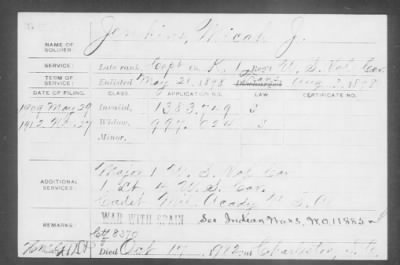 Jenkins, Micah J.
NAME OF SOLDIER:
SERVICE: Late rank, Capt. in K, 1 U. S. Vol. Cav.
TERM OF SERVICE: Enlisted May 21, 1898 Discharged Aug. 3, 1898
DATE OF FILING. CLASS. APPLICATION NO. LAW CERTIFICATE NO.
1909 May 29 Invalid, 1383.729 S
1912 27 Widow, 997.024 S
Minor,
ADDITIONAL SERVICES: Major 1 U. S. Vol Cav.
1 Lt. 4 U. S. Cav.
Cadet Mil. Acady U.S.A.
REMARKS: WAR WITH SPAIN See Indian Wars, W.O. 11882
8370
Died Oct 17, 1912, Charleston, S.C.